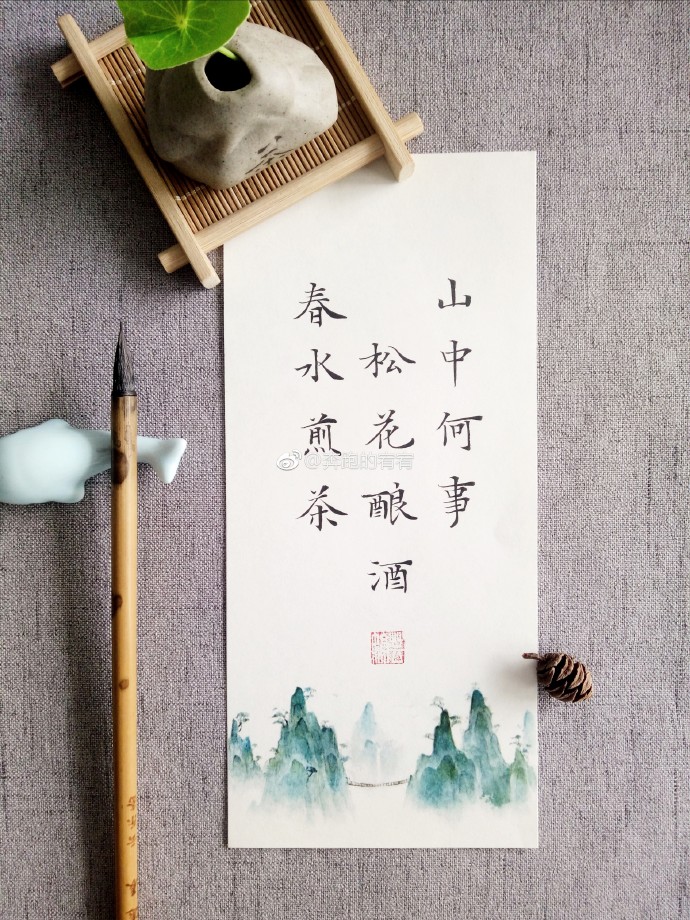 山中何事
松花酿酒
春水煎茶
@奔跑的宥宥